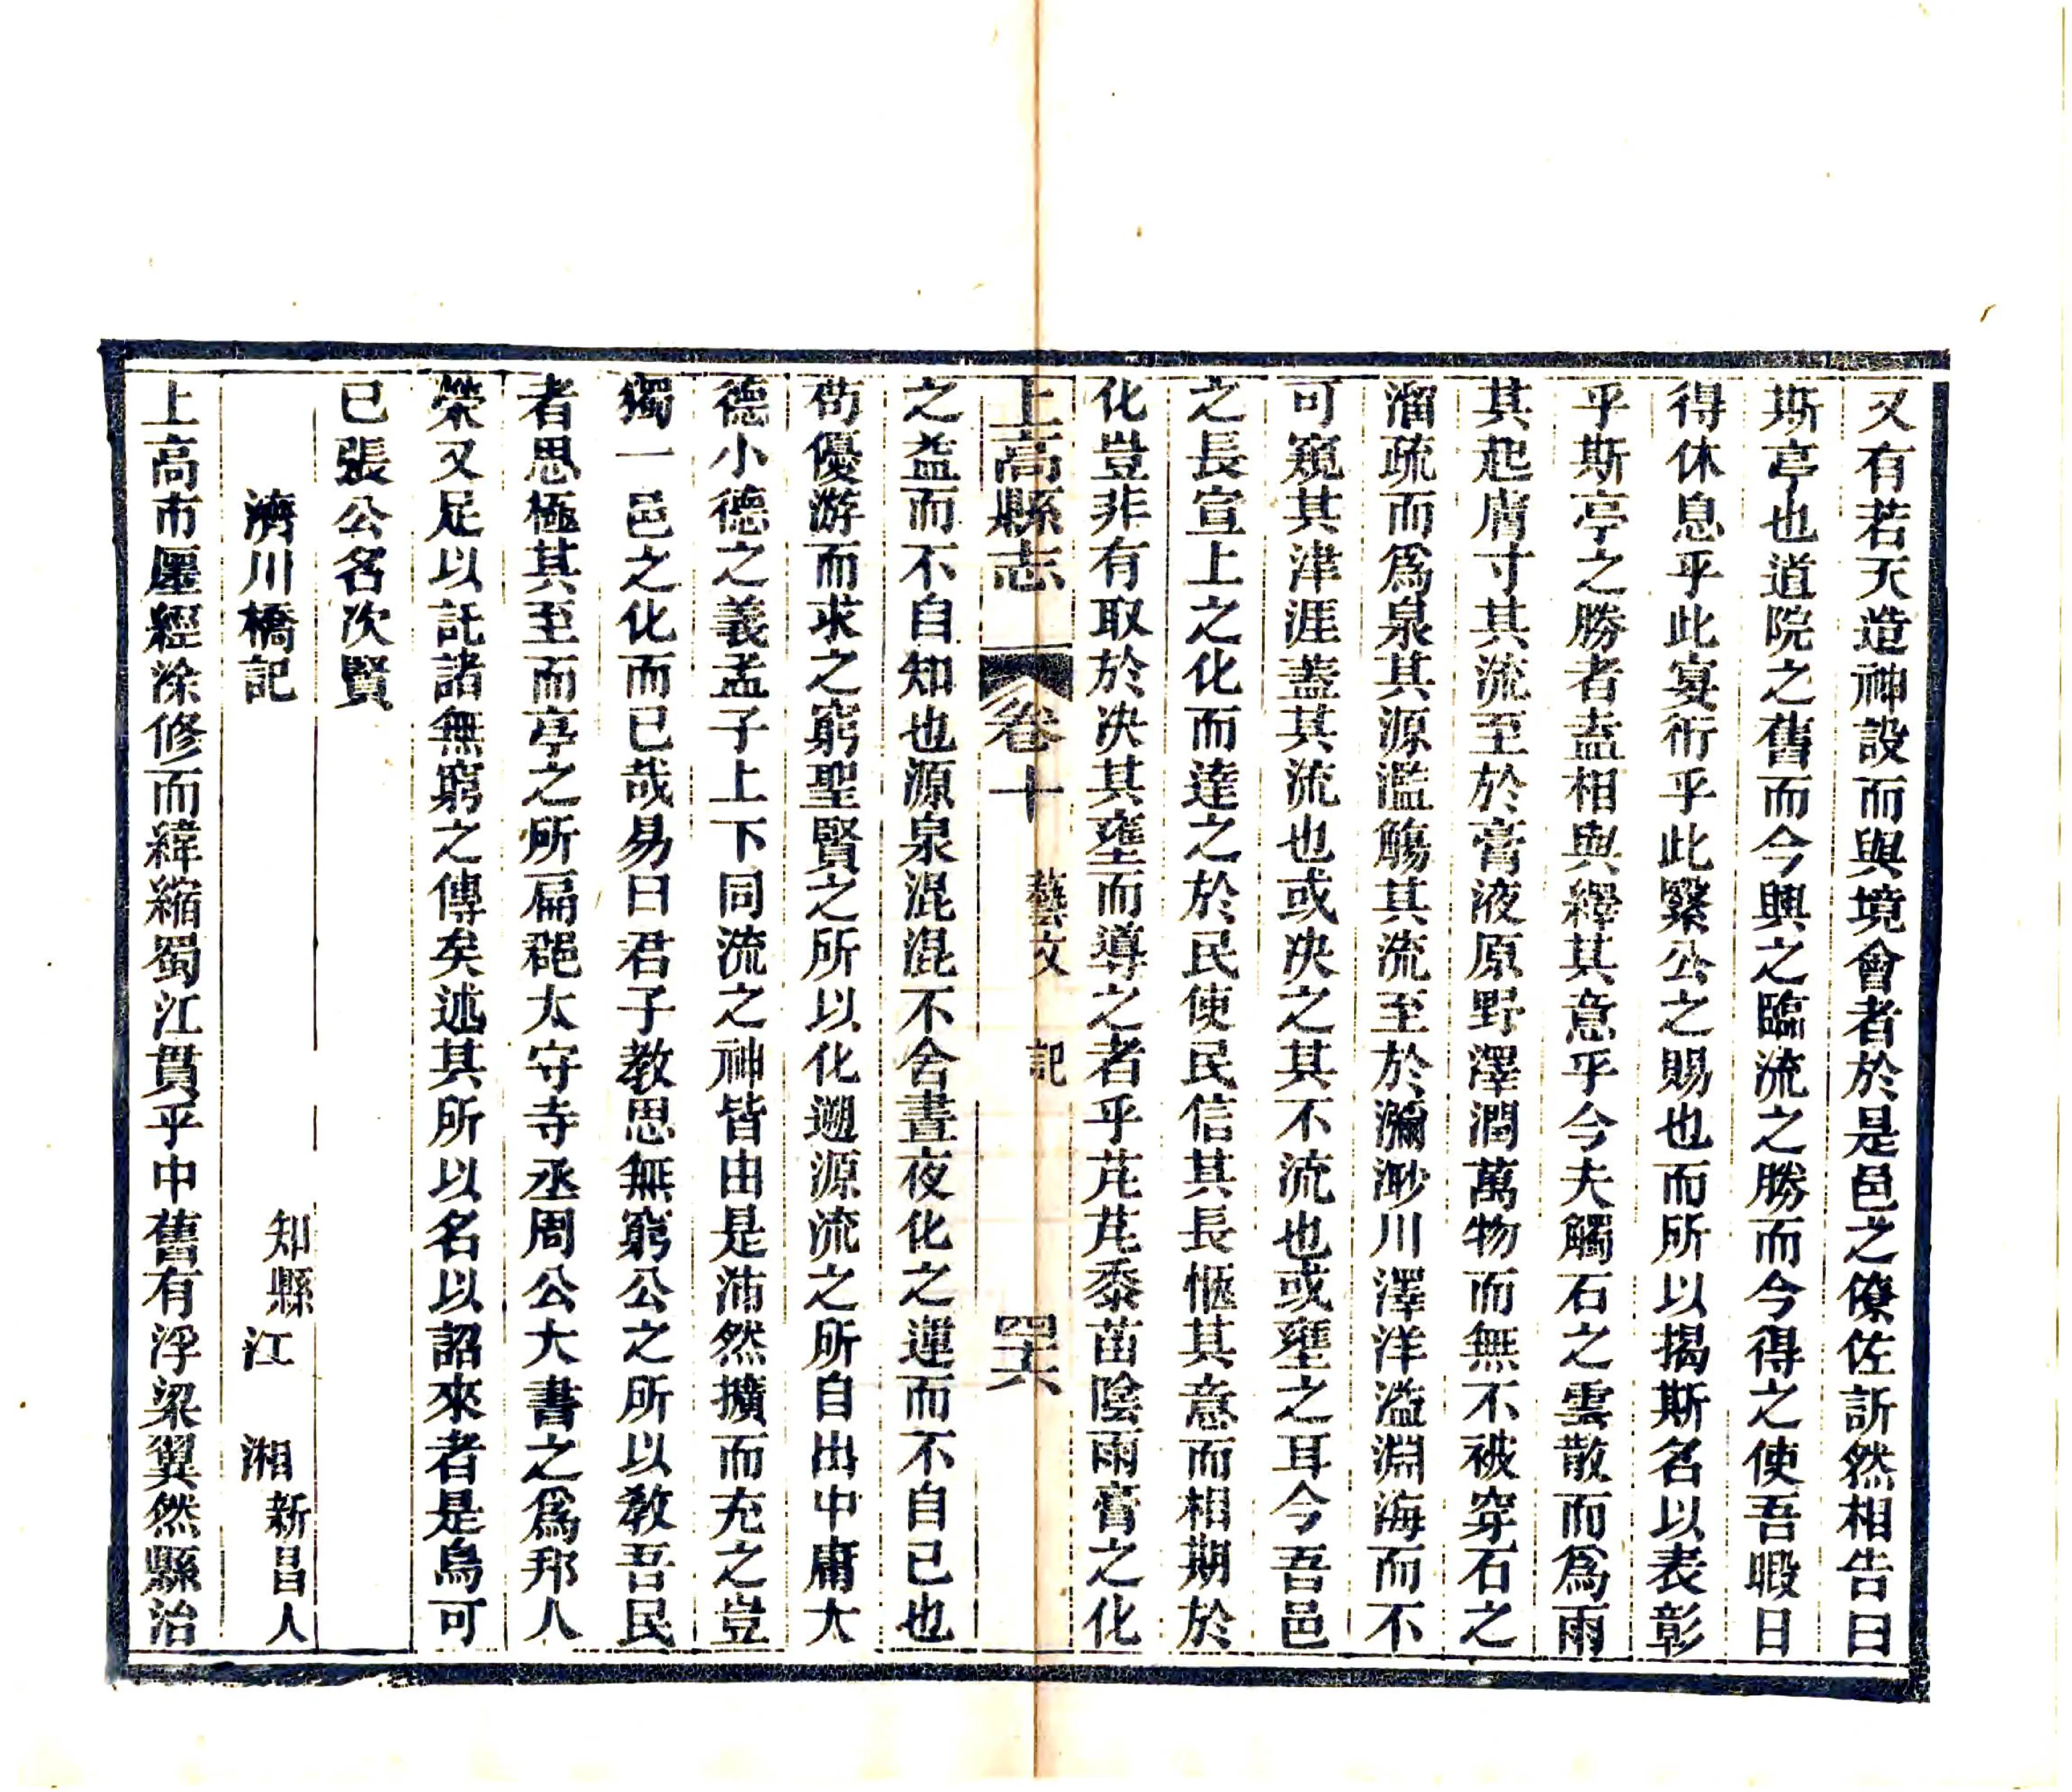 又有若天造神設而與境會者於是邑之僚佐訢然相告曰
斯亭也道院之舊而今興之臨流之勝而今得之使吾暇日
得休息乎此宴衎乎此繄公之賜也而所以揭斯名以表彰
乎斯亭之勝者盍相與繹其意乎今夫觸石之雲散而爲雨
其起膚寸其流至於膏液原野澤潤萬物而無不被穿石之
溜疏而爲泉其源濫觴其流至於瀰渺川澤洋溢淵海而不
可窺其津涯蓋其流也或决之其不流也或壅之耳今吾邑
之長宣上之化而達之於民使民信其長愜其意而相期於
化豈非有取於决其壅而導之者乎芃芃黍苗陰雨膏之化
上高縣志 卷十 藝文 記 四六
之益而不自知也源泉混混不舍晝夜化之運而不自已也
苟優游而求之窮聖賢之所以化遡源流之所自出中庸大
德小德之義孟子上下同流之神皆由是沛然擴而充之豈
獨一邑之化而已哉易曰君子教思無窮公之所以教吾民
者思極其至而亭之所扁郒太守寺丞周公大書之爲邦人
榮又足以託諸無窮之傳矣述其所以名以詔來者是烏可
已張公名次賢
濟川橋記 知縣江湘新昌人
上高市廛經涂修而緯縮蜀江貫乎中舊有浮梁翼然縣治